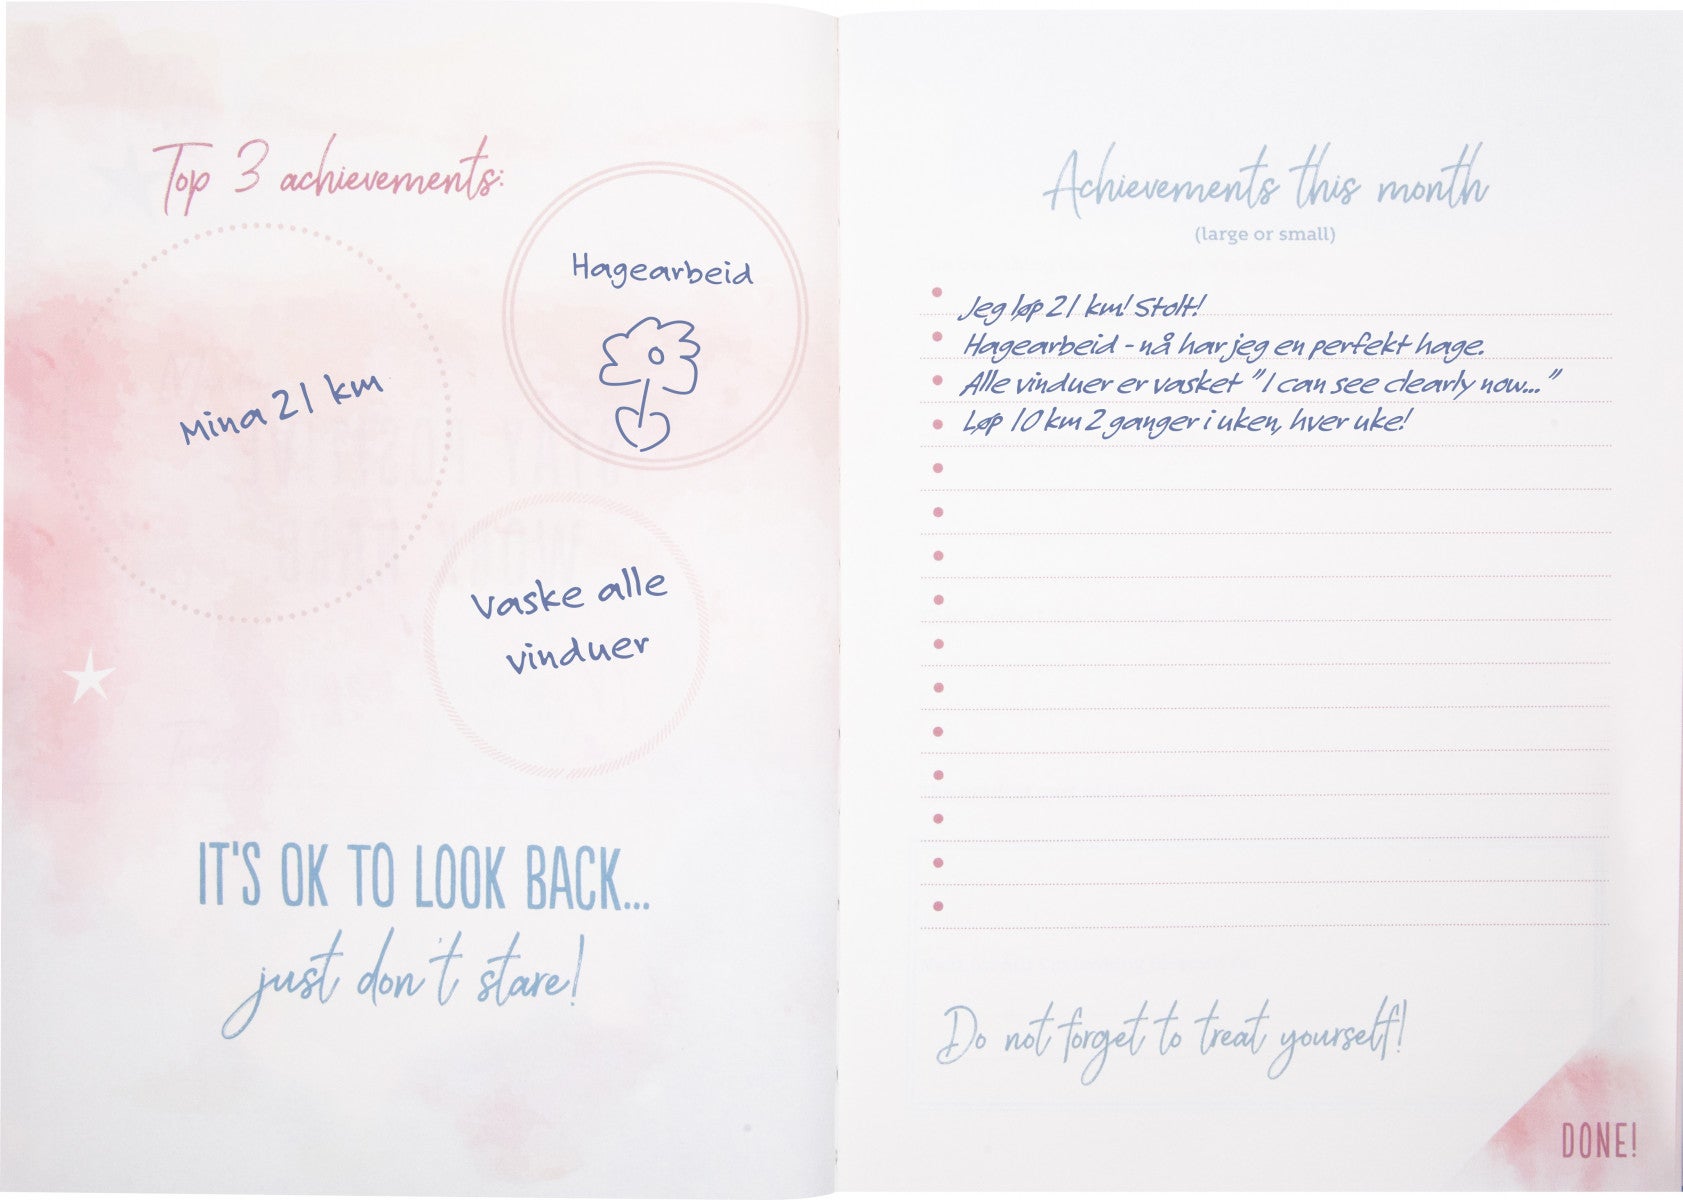 Top 3 achievements:
Hagearbeid
Mina 21 km
Vaske alle
vinduer
IT'S OK TO LOOK BACK...
just don't stare!
Achievements this month
(large or small)
Jeg løp 21 km! Stolt!
Hagearbeid - nå har jeg en perfekt hage.
Alle vinduer er vasket "I can see clearly now..."
Løp 10 km 2 ganger i uken, hver uke!
Do not forget to treat yourself!
DONE!